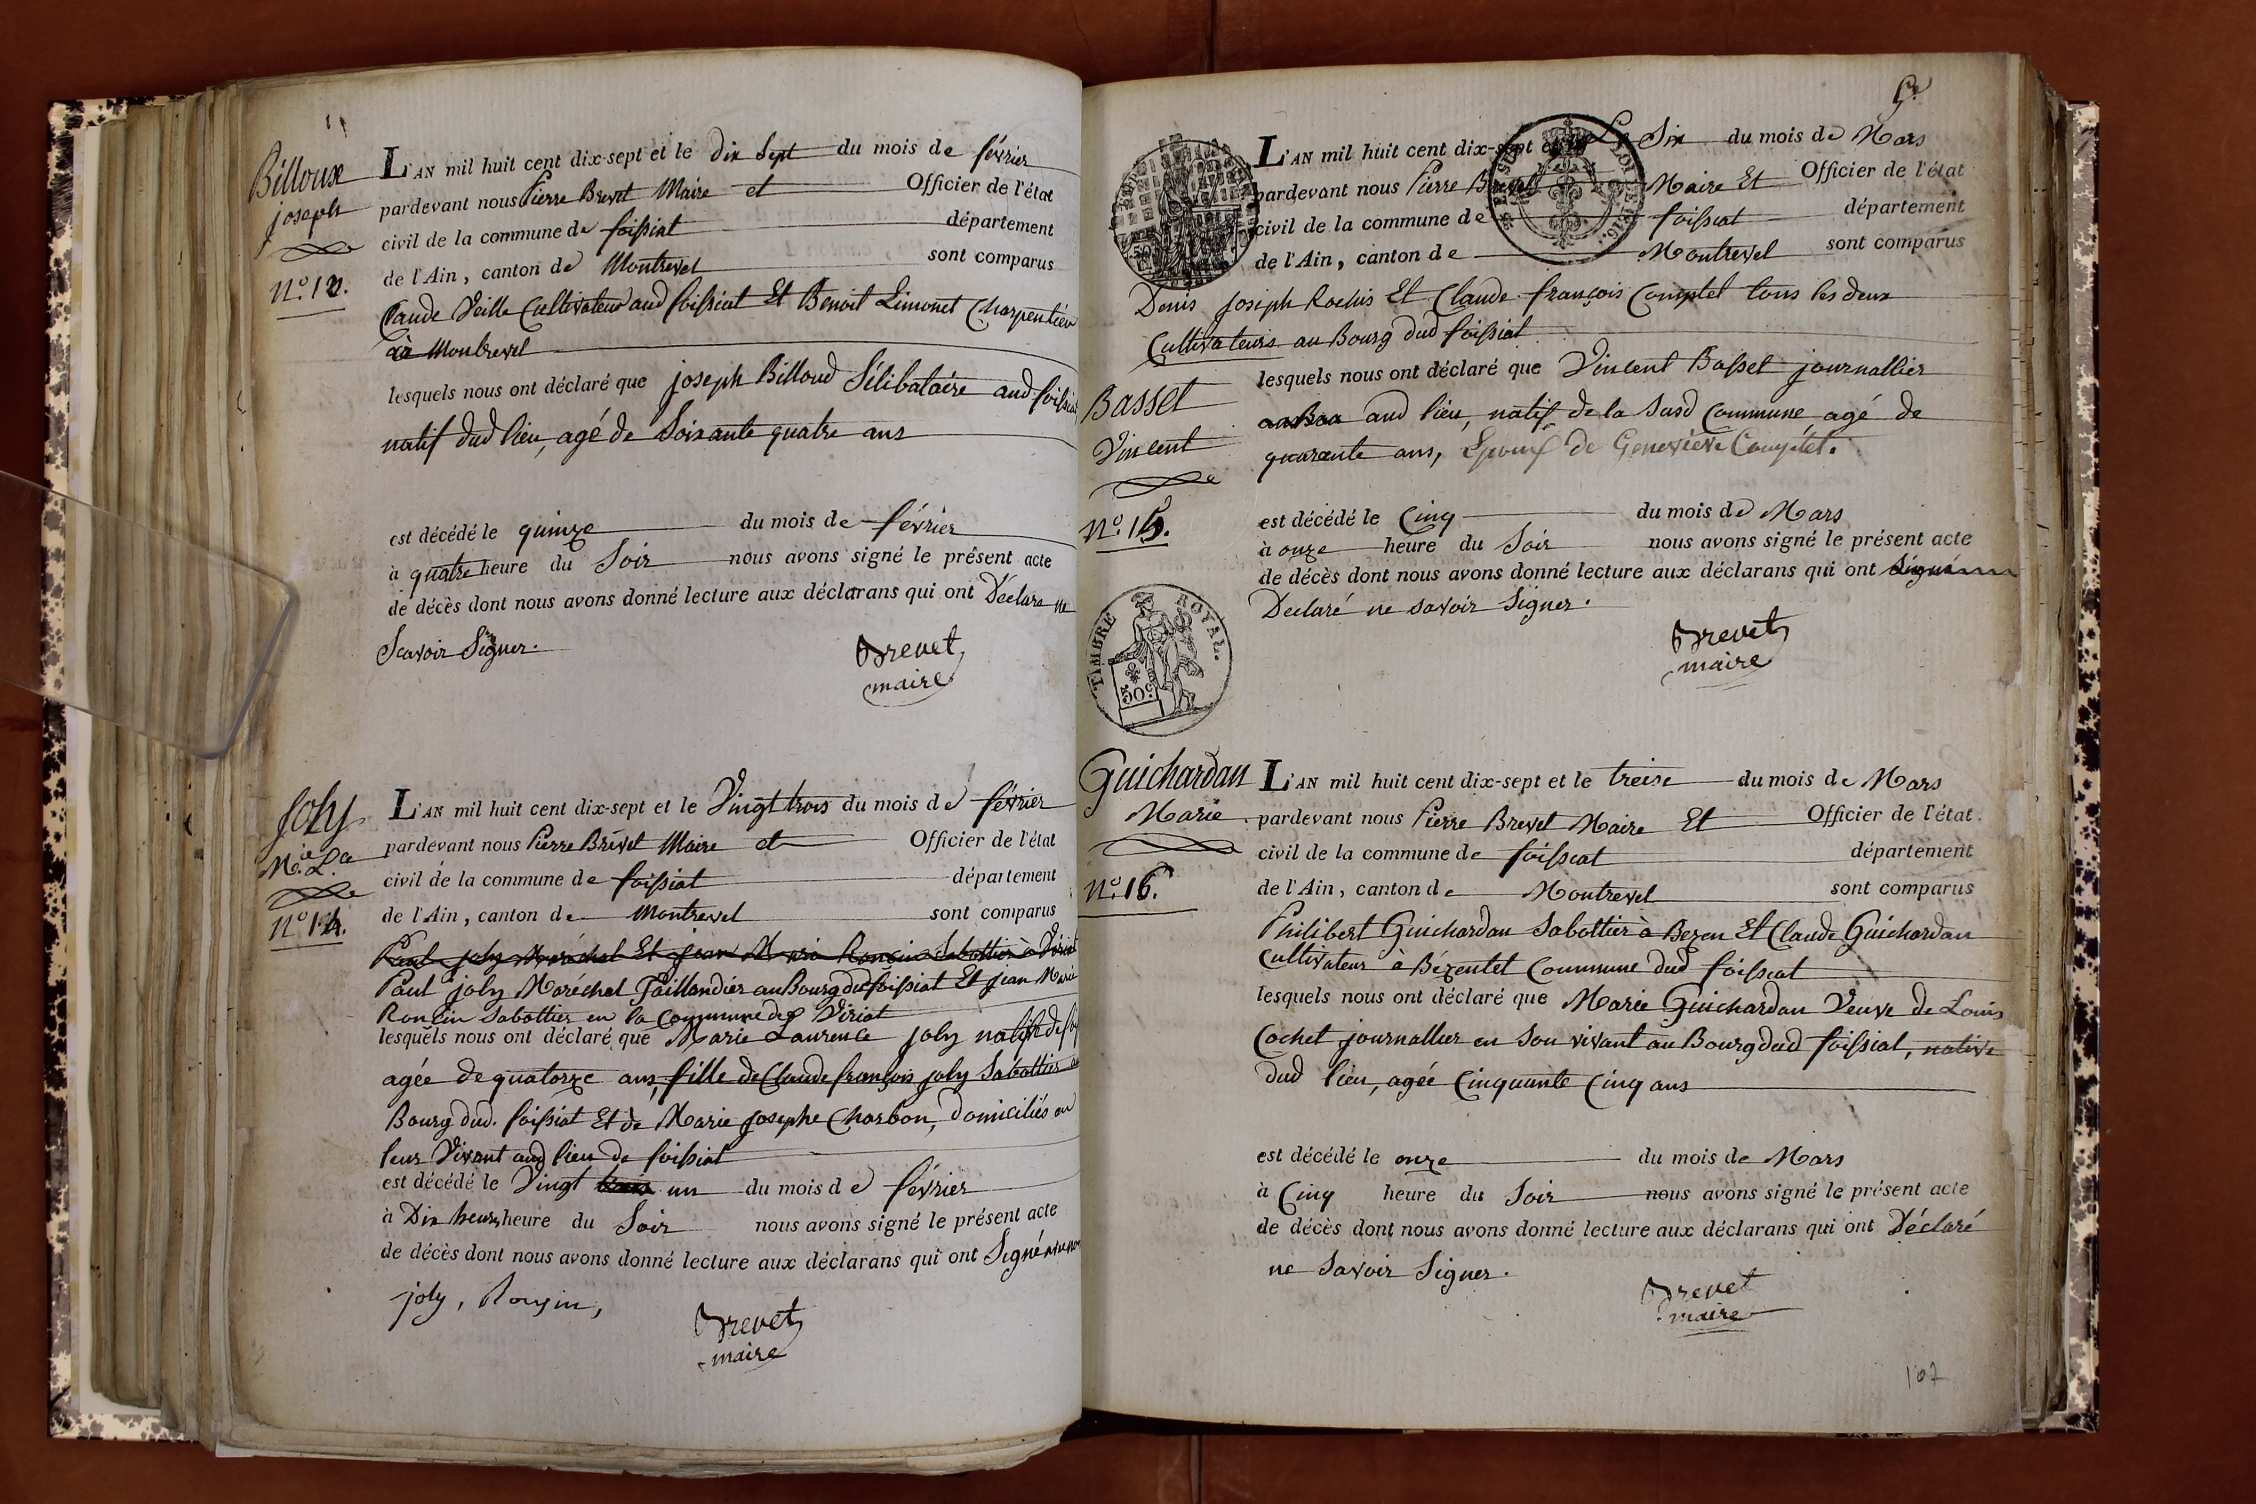 Billoux
joseph
N.º 12.
L'AN mil huit cent dix-sept et le dix Sept du mois de février
pardevant nous Pierre Brevet Maire et Officier de l'état
civil de la commune de foissiat département
de l'Ain, canton de Montrevel sont comparus
Claude Veille Cultivateur aud foissiat Et Benoit Limonet Charpentier
à Montrevel
lesquels nous ont déclaré que joseph Billoud Sélibataire aud foissiat
natif dud lieu, agé de Soixante quatre ans
est décédé le quinze du mois de février
à quatre heure du Soir nous avons signé le présent acte
de décès dont nous avons donné lecture aux déclarans qui ont Déclare ne
Scavoir Signer.
Brevet
maire
Joly
M.ie L.ce
N.º 14.
L'AN mil huit cent dix-sept et le Vingt trois du mois de février
pardevant nous Pierre Brevet Maire et Officier de l'état
civil de la commune de foissiat département
de l'Ain, canton de Montrevel sont comparus
Paul joly Maréchal Et jean Marie Roncin Sabottier à Viriat
Paul joly Maréchal Taillandier au Bourg dud foissiat Et jean Marie
Roncin Sabottier en la Commune de Viriat
lesquels nous ont déclaré que Marie Laurence joly native de
agée de quatorze ans, fille de Claude françois joly Sabottier au
Bourg dud. foissiat Et de Marie josephe Charbon, Domiciliés en
leur Vivant aud lieu de foissiat
est décédé le Vingt trois un du mois de février
à Dix heures heure du Soir nous avons signé le présent acte
de décès dont nous avons donné lecture aux déclarans qui ont Signé avec nous
joly, Ronsin,
Brevet
maire
5e
L'AN mil huit cent dix-sept et le Le Six du mois de Mars
pardevant nous Pierre Brevet Maire Et Officier de l'état
civil de la commune de foissiat département
de l'Ain, canton de Montrevel sont comparus
Denis joseph Rochis Et Claude françois Comptet tous les deux
Cultivateurs au Bourg dud foissiat
Basset
Vincent
N.º 15.
lesquels nous ont déclaré que Vincent Basset journallier
aud lieu, natif de la Susd Commune agé de
quarante ans, Epoux de Geneviève Comptet.
est décédé le Cinq du mois de Mars
à onze heure du Soir nous avons signé le présent acte
de décès dont nous avons donné lecture aux déclarans qui ont Signé
Declaré ne savoir Signer.
Brevet
maire
TIMBRE ROYAL
50c
Guichardan
Marie
N.º 16.
L'AN mil huit cent dix-sept et le treise du mois de Mars
pardevant nous Pierre Brevet Maire Et Officier de l'état
civil de la commune de foissiat département
de l'Ain, canton de Montrevel sont comparus
Philibert Guichardan Sabottier à Bezen Et Claude Guichardan
Cultivateur à Bézentet Commune dud foissiat
lesquels nous ont déclaré que Marie Guichardan Veuve de Louis
Cochet journallier en Son vivant au Bourg dud foissiat, native
dud lieu, agée Cinquante Cinq ans
est décédé le onze du mois de Mars
à Cinq heure du Soir nous avons signé le présent acte
de décès dont nous avons donné lecture aux déclarans qui ont Déclaré
ne Savoir Signer.
Brevet
maire
107